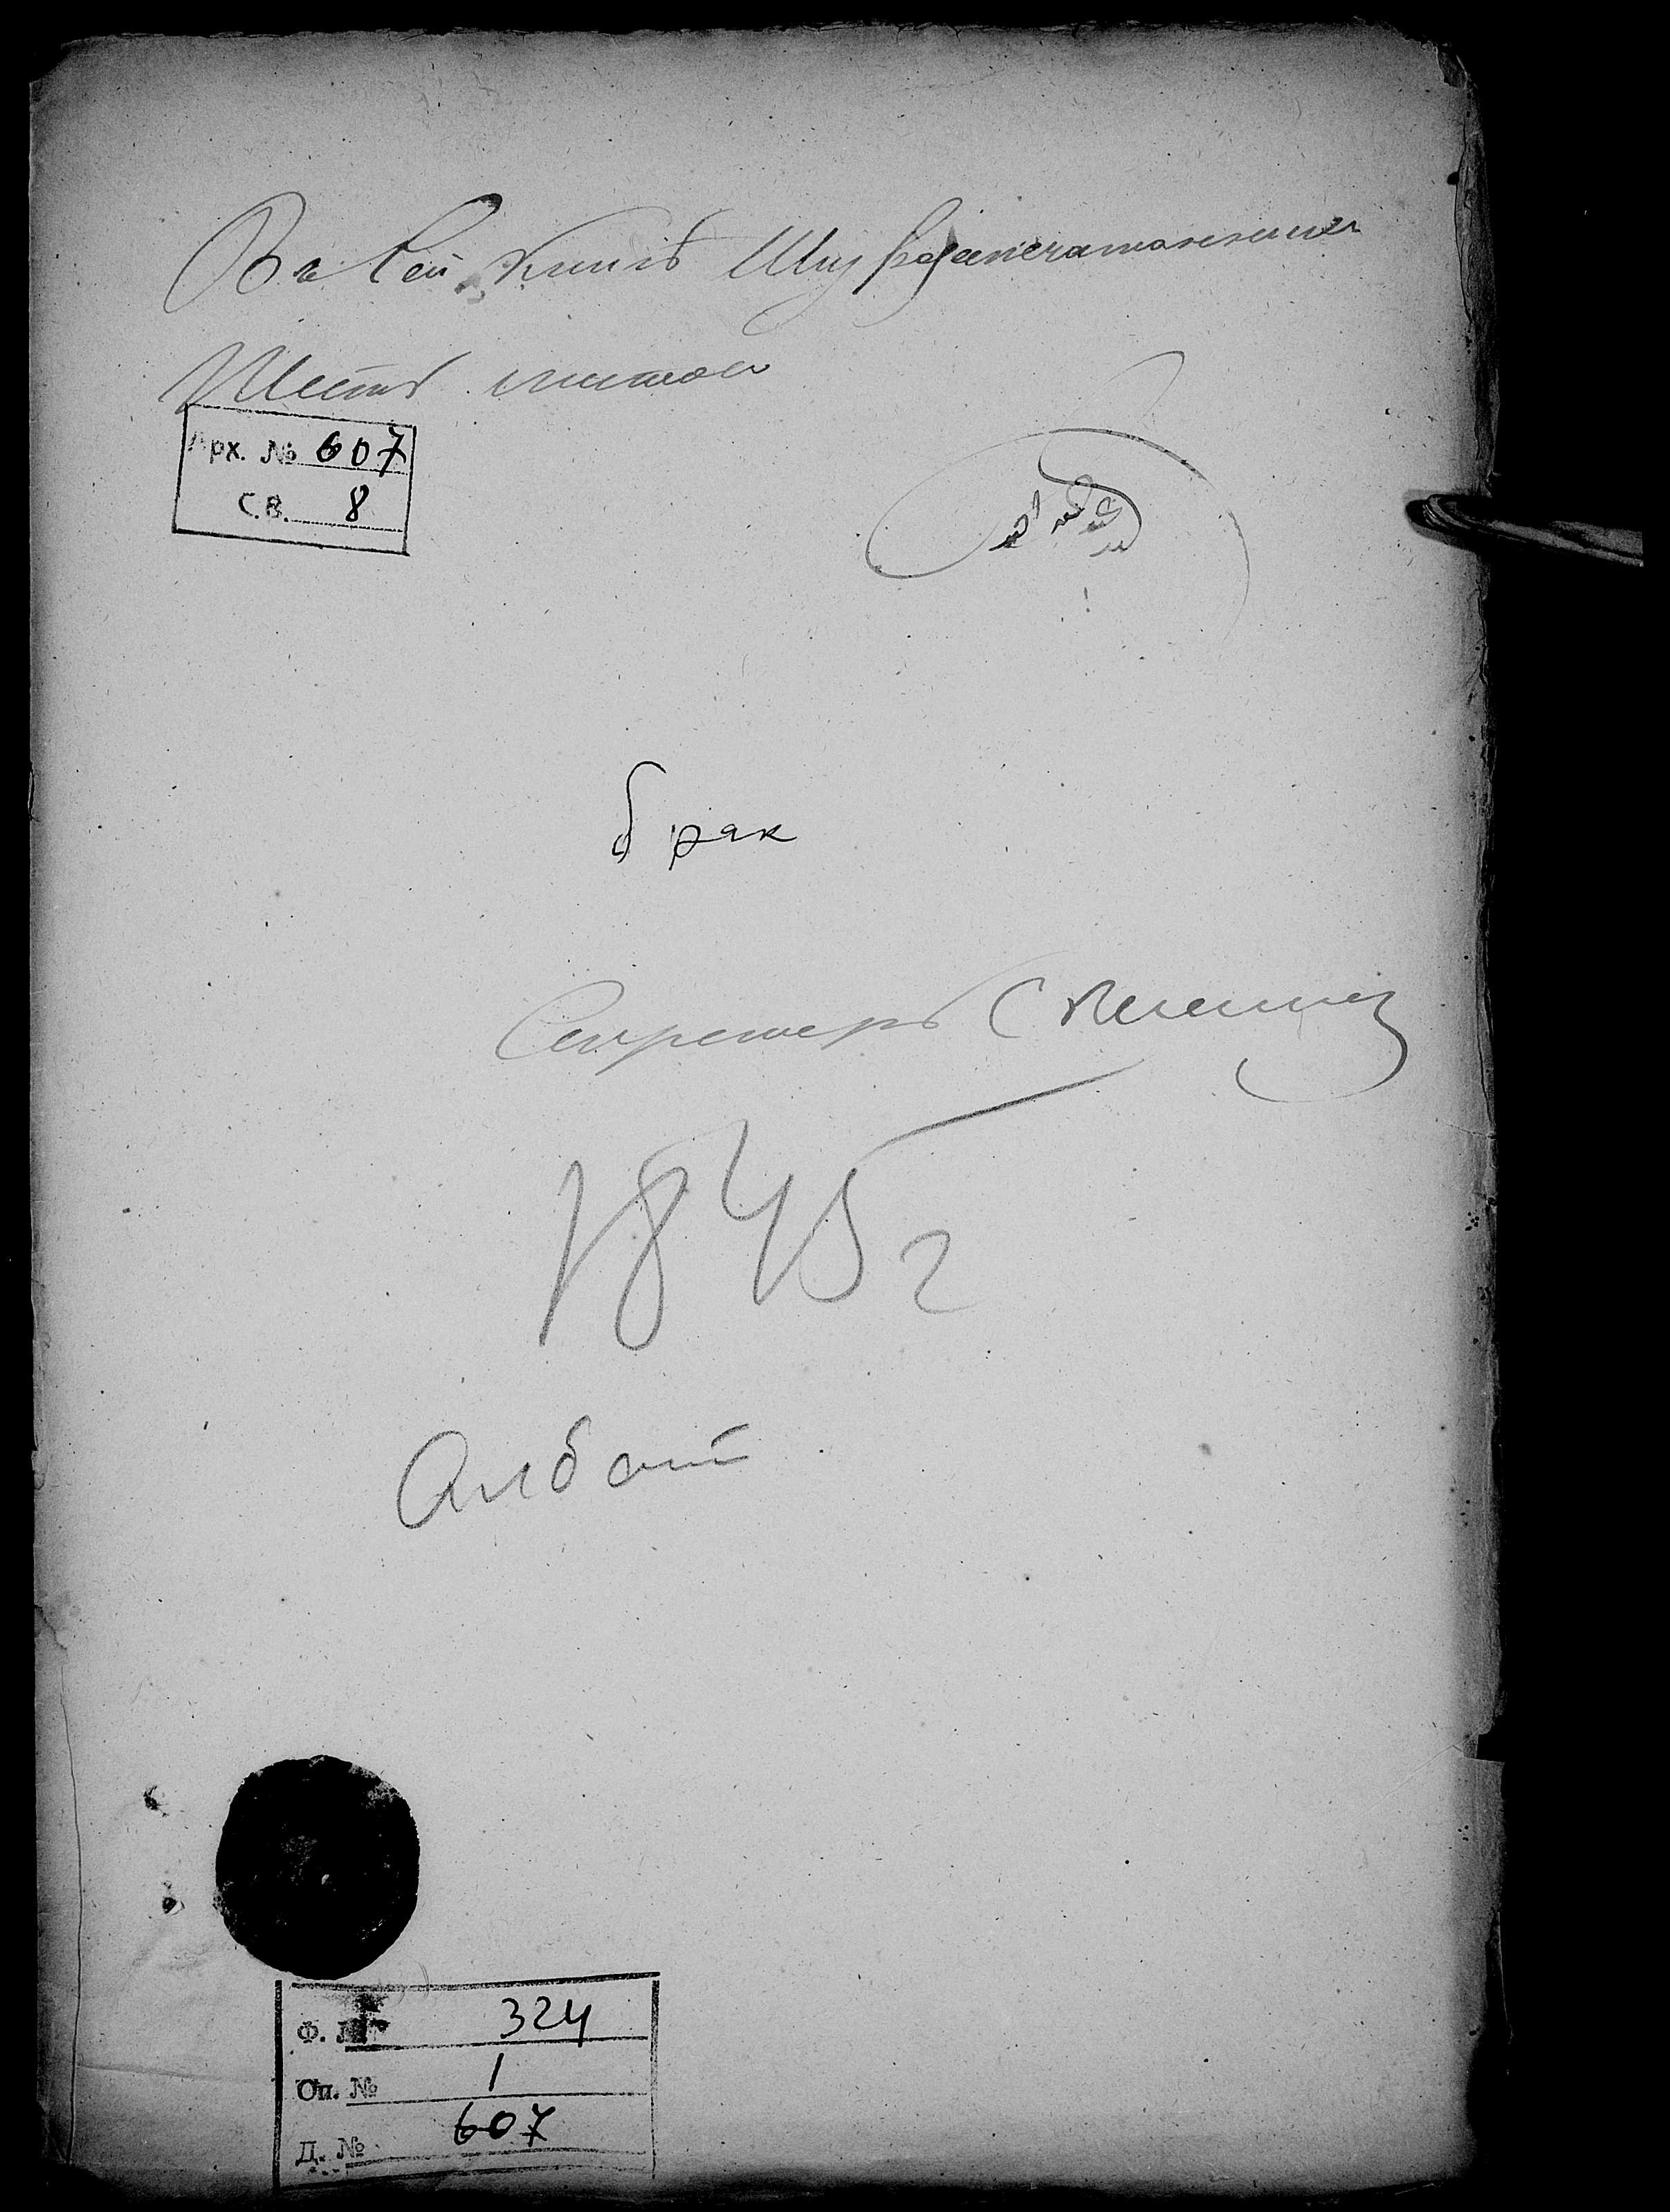 Въ сей книгѣ Шнурозапечатанныхъ
Шесть листовъ
Арх. № 607
С.В. 8
брак
Секретарь С
1845 г
Албат
Ф. № 324
Оп. № 1
Д. № 607